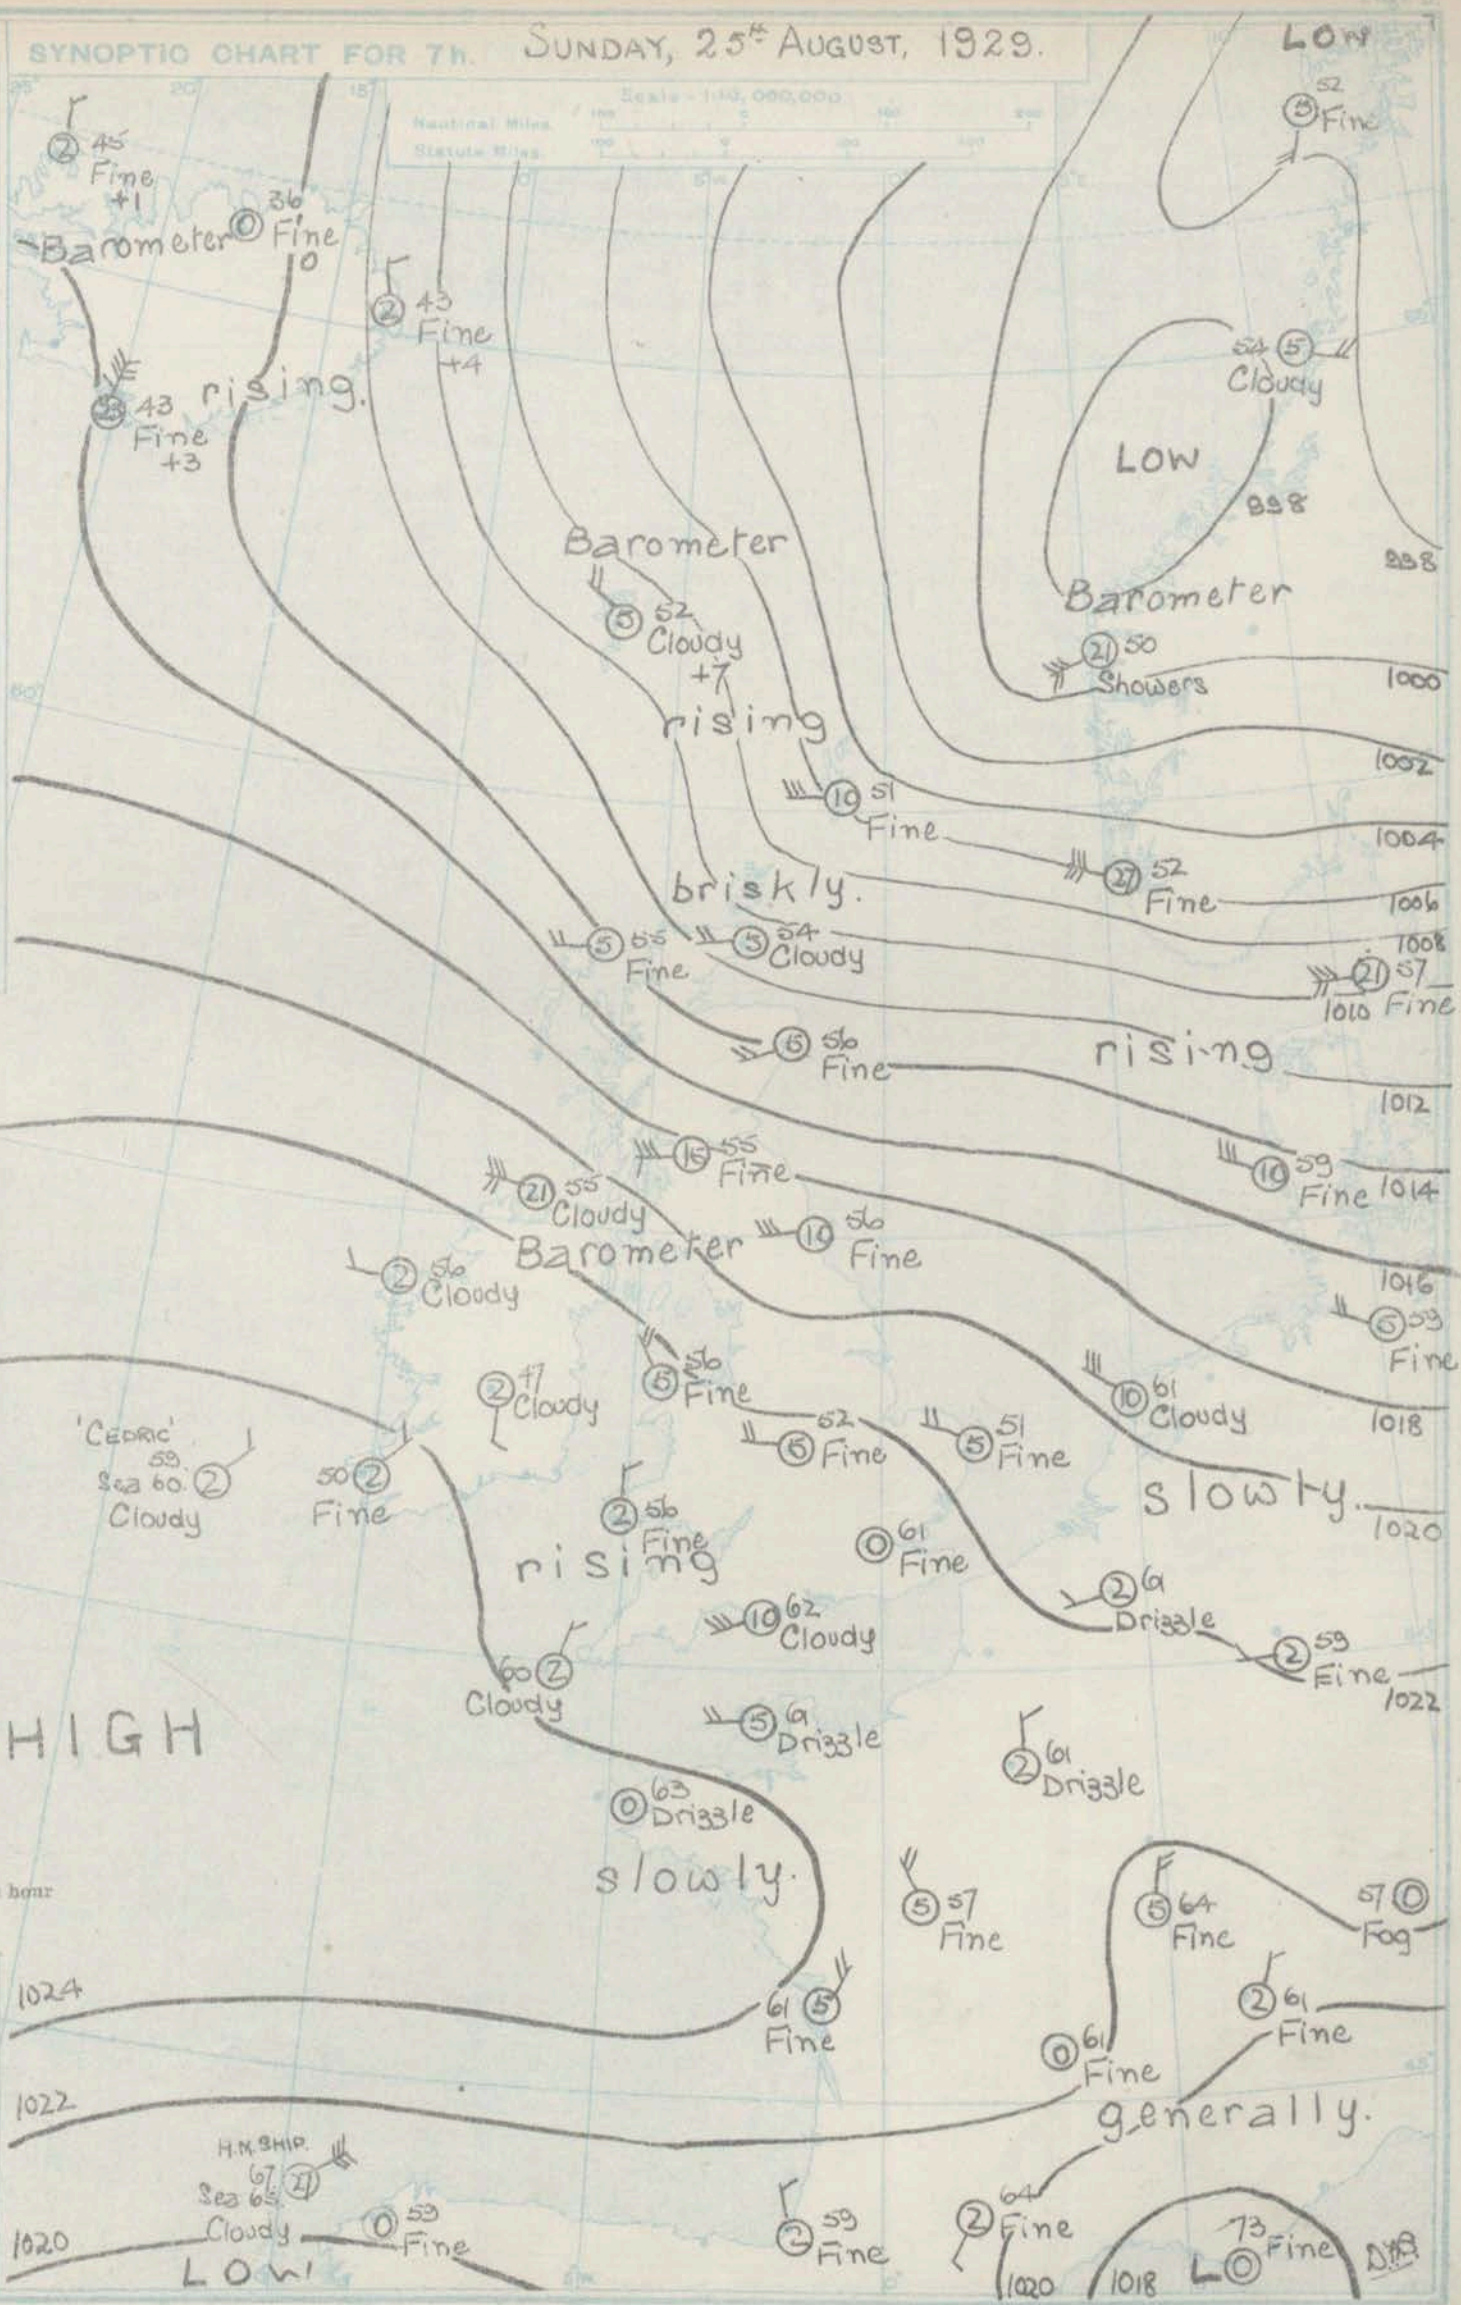 SYNOPTIC CHART FOR 7h. SUNDAY, 25th AUGUST, 1929.
LOW
25° 20° 15°
Scale - 1:10,000,000
Nautical Miles
Statute Miles
52
5 Fine
2 45
Fine
+1
36
0 Fine
0
Barometer
2 43
Fine
+4
rising.
43
Fine
+3
54 5
Cloudy
LOW
998
998
Barometer
5 52
Cloudy
+7
Barometer
21 50
Showers
1000
60°
rising
1002
10 51
Fine
1004
27 52
Fine
1006
briskly.
5 55
Fine
5 54
Cloudy
1008
21 57
Fine
1010
5 56
Fine
rising
1012
15 55
Fine
10 59
Fine
1014
21 55
Cloudy
Barometer
10 56
Fine
2 56
Cloudy
1016
5 59
Fine
5 56
Fine
2 47
Cloudy
10 61
Cloudy
1018
'CEDRIC'
59
Sea 60. 2
Cloudy
50 2
Fine
52
5 Fine
5 51
Fine
slowly.
1020
2 56
Fine
rising
0 61
Fine
2 61
Drizzle
10 62
Cloudy
2 59
Fine
1022
60 2
Cloudy
HIGH
5 61
Drizzle
2 61
Drizzle
0 63
Drizzle
slowly.
hour
5 57
Fine
5 64
Fine
57 0
Fog
1024
61 5
Fine
2 61
Fine
0 61
Fine
45°
1022
generally.
H.M. SHIP.
67 27
Sea 65
Cloudy
0 59
Fine
1020
LOW
2 59
Fine
64
2 Fine
1020
1018
73
Fine
L 0